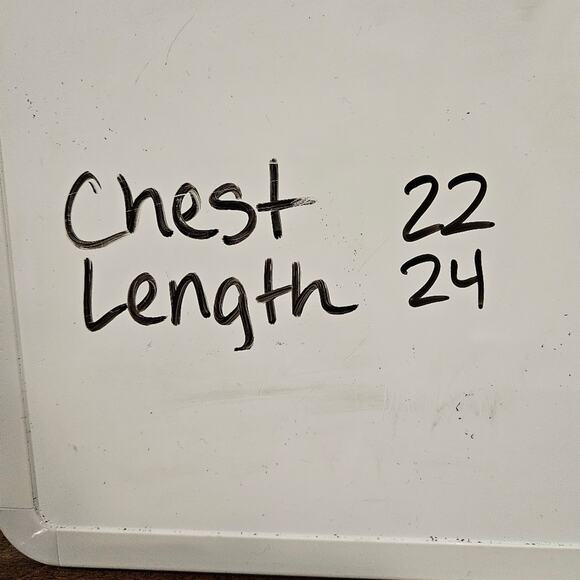 Chest 22
Length 24